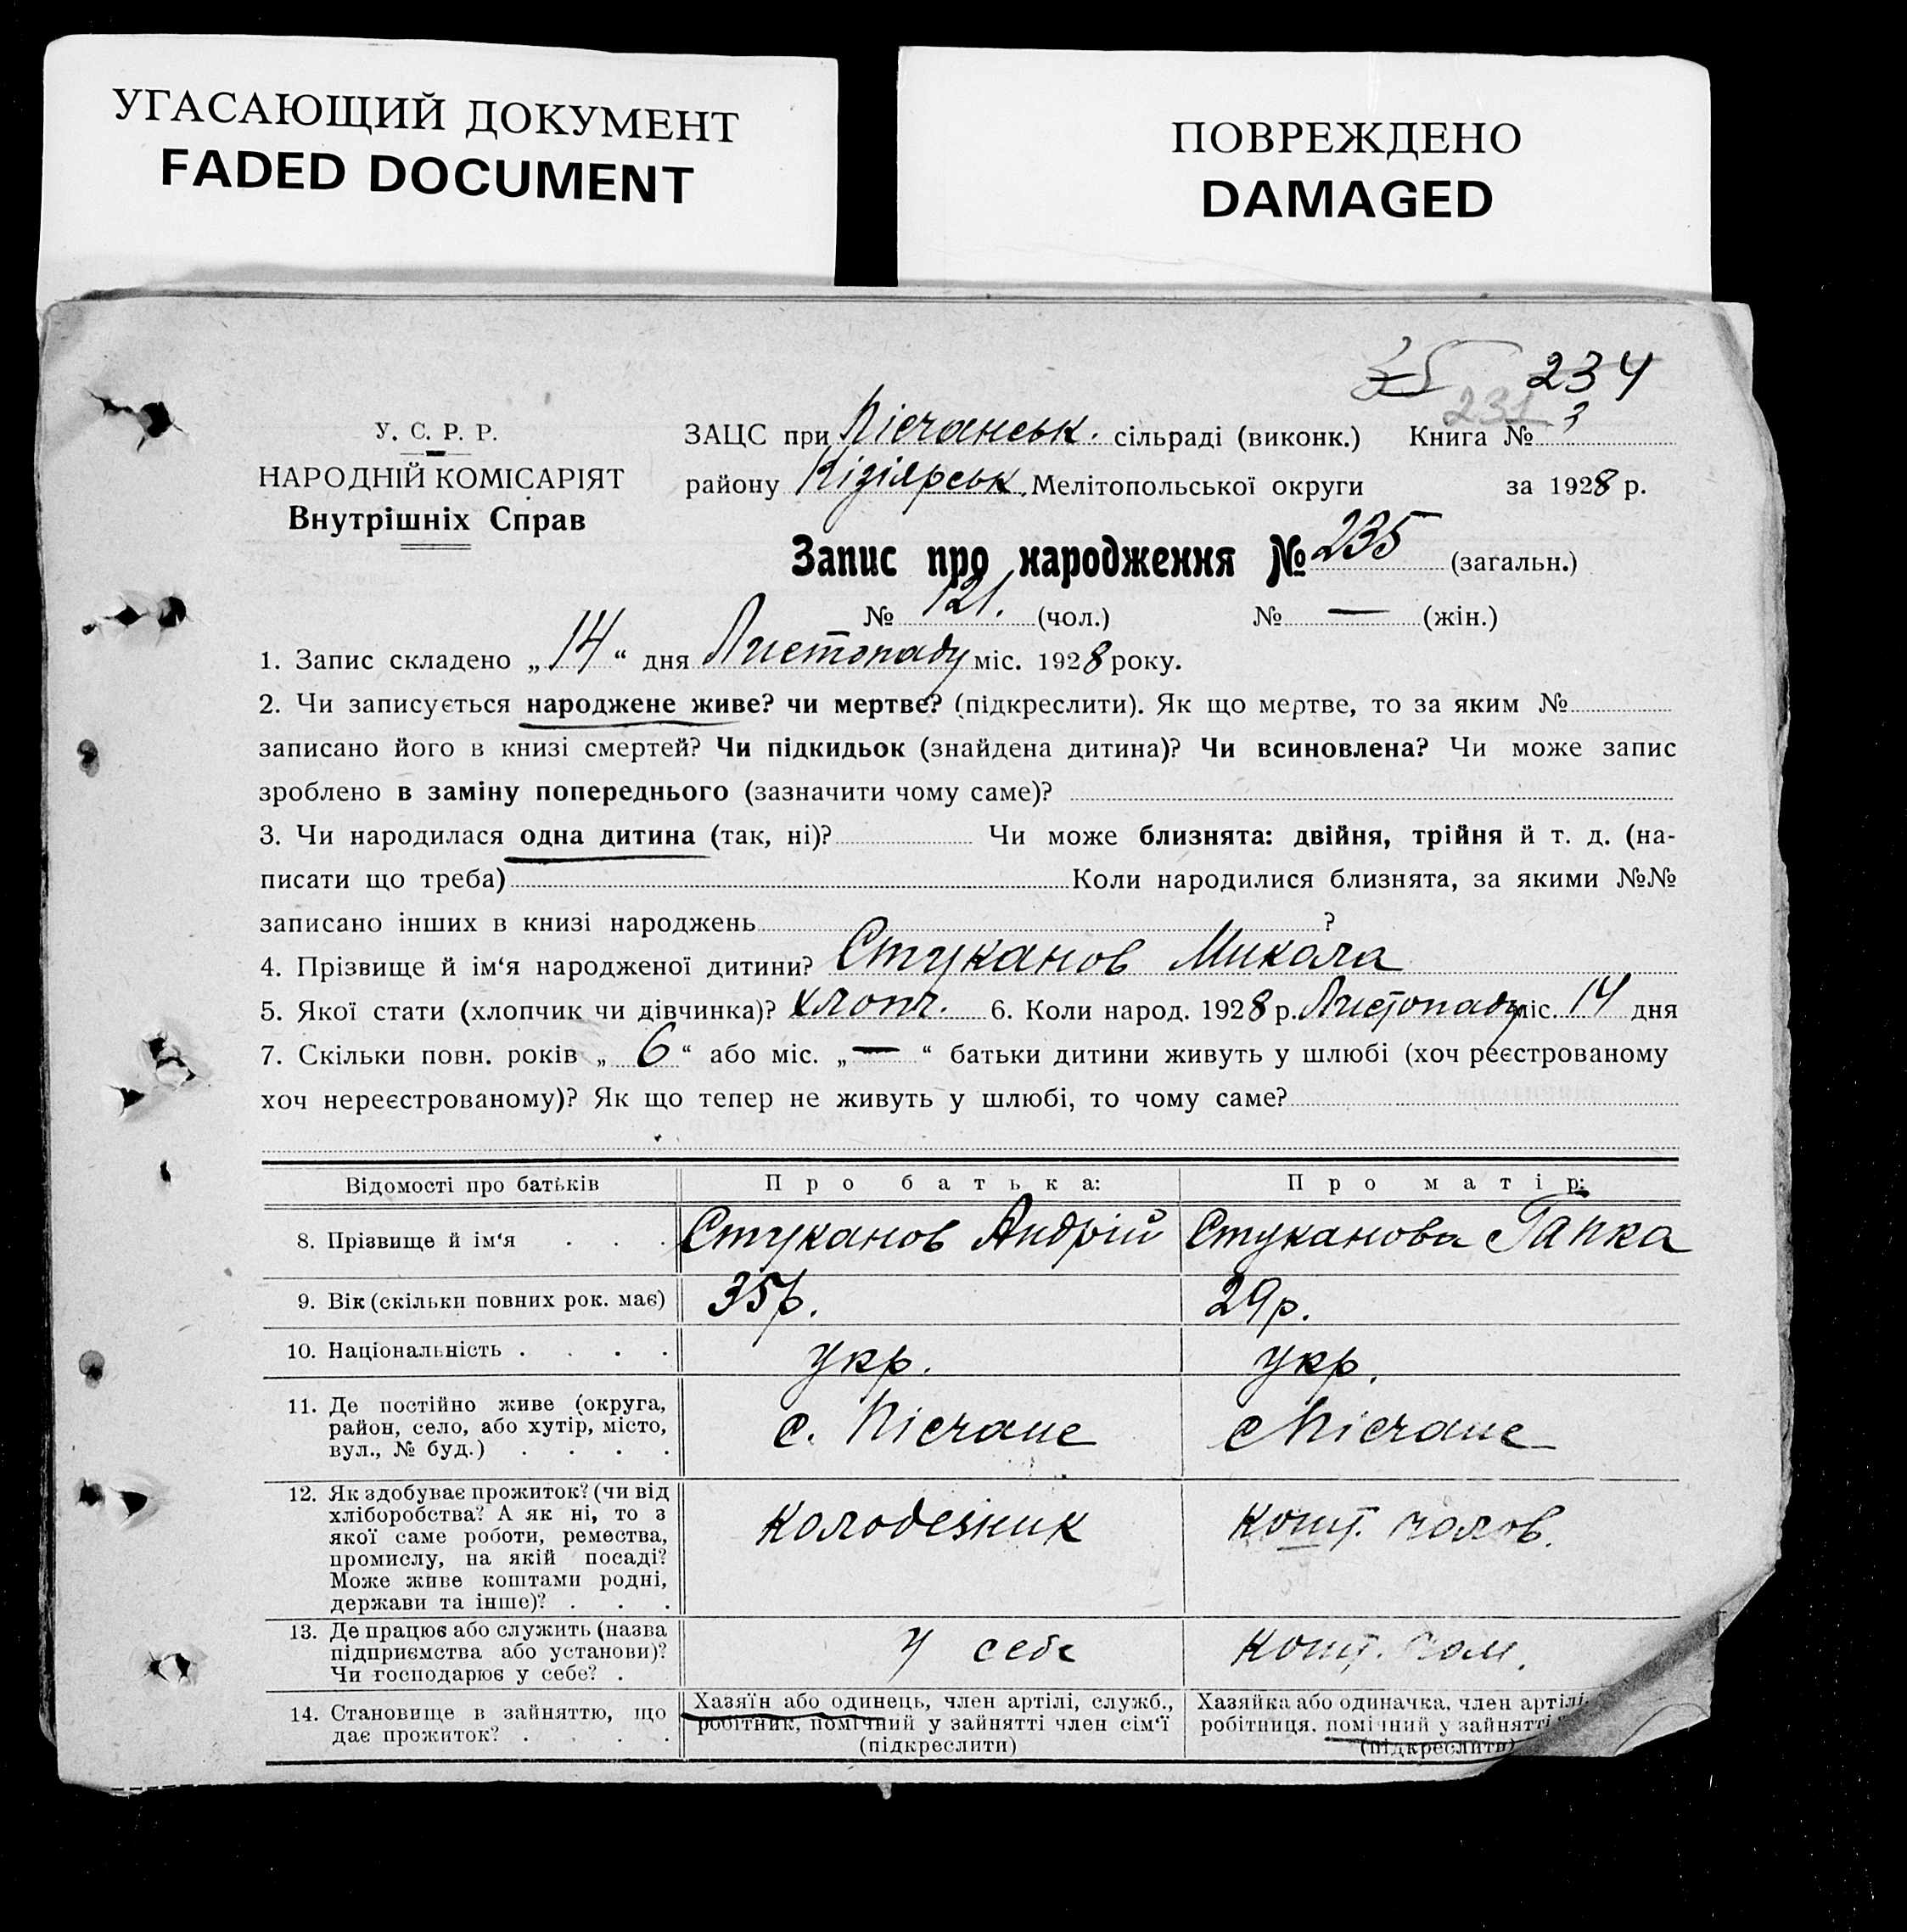 УГАСАЮЩИЙ ДОКУМЕНТ
FADED DOCUMENT
ПОВРЕЖДЕНО
DAMAGED
234
231
У. С. Р. Р.
НАРОДНІЙ КОМІСАРІЯТ
Внутрішніх Справ
ЗАЦС при Пісчанськ. сільраді (виконк.) Книга № 3
району Кізіярськ. Мелітопольської округи за 1928 р.
Запис про народження № 235 (загальн.)
№ 121. (чол.) № — (жін.)
1. Запис складено „ 14 “ дня Листопаду міс. 1928 року.
2. Чи записується народжене живе? чи мертве? (підкреслити). Як що мертве, то за яким №
записано його в книзі смертей? Чи підкидьок (знайдена дитина)? Чи всиновлена? Чи може запис
зроблено в заміну попереднього (зазначити чому саме)?
3. Чи народилася одна дитина (так, ні)? Чи може близнята: двійня, трійня й т. д. (на-
писати що треба) Коли народилися близнята, за якими №№
записано інших в книзі народжень ?
4. Прізвище й ім‘я народженої дитини? Стуканов Микола
5. Якої стати (хлопчик чи дівчинка)? хлопч. 6. Коли народ. 1928 р. Листопаду міс. 14 дня
7. Скільки повн. років „ 6 “ або міс. „ — “ батьки дитини живуть у шлюбі (хоч реєстрованому
хоч нереєстрованому)? Як що тепер не живуть у шлюбі, то чому саме?
Відомості про батьків Про батька: Про матір:
8. Прізвище й ім‘я . . . Стуканов Андрій Стуканова Гапка
9. Вік (скільки повних рок. має) 35р. 29р.
10. Національність . . . . укр. укр.
11. Де постійно живе (округа,
район, село, або хутір, місто,
вул., № буд.) . . . .
с. Пісчане с Пісчане
12. Як здобуває прожиток? (чи від
хліборобства? А як ні, то з
якої саме роботи, ремества,
промислу, на якій посаді?
Може живе коштами родні,
держави та інше)? . . .
колодезник кошт. чолов.
13. Де працює або служить (назва
підприємства або установи)?
Чи господарює у себе? .
у себе кошт. чол.
14. Становище в зайняттю, що
дає прожиток? . . . .
Хазяїн або одинець, член артілі, служб.,
робітник, помічний у зайнятті член сім‘ї
(підкреслити)
Хазяйка або одиначка, член артілі,
робітниця, помічний у зайнятті
(підкреслити)